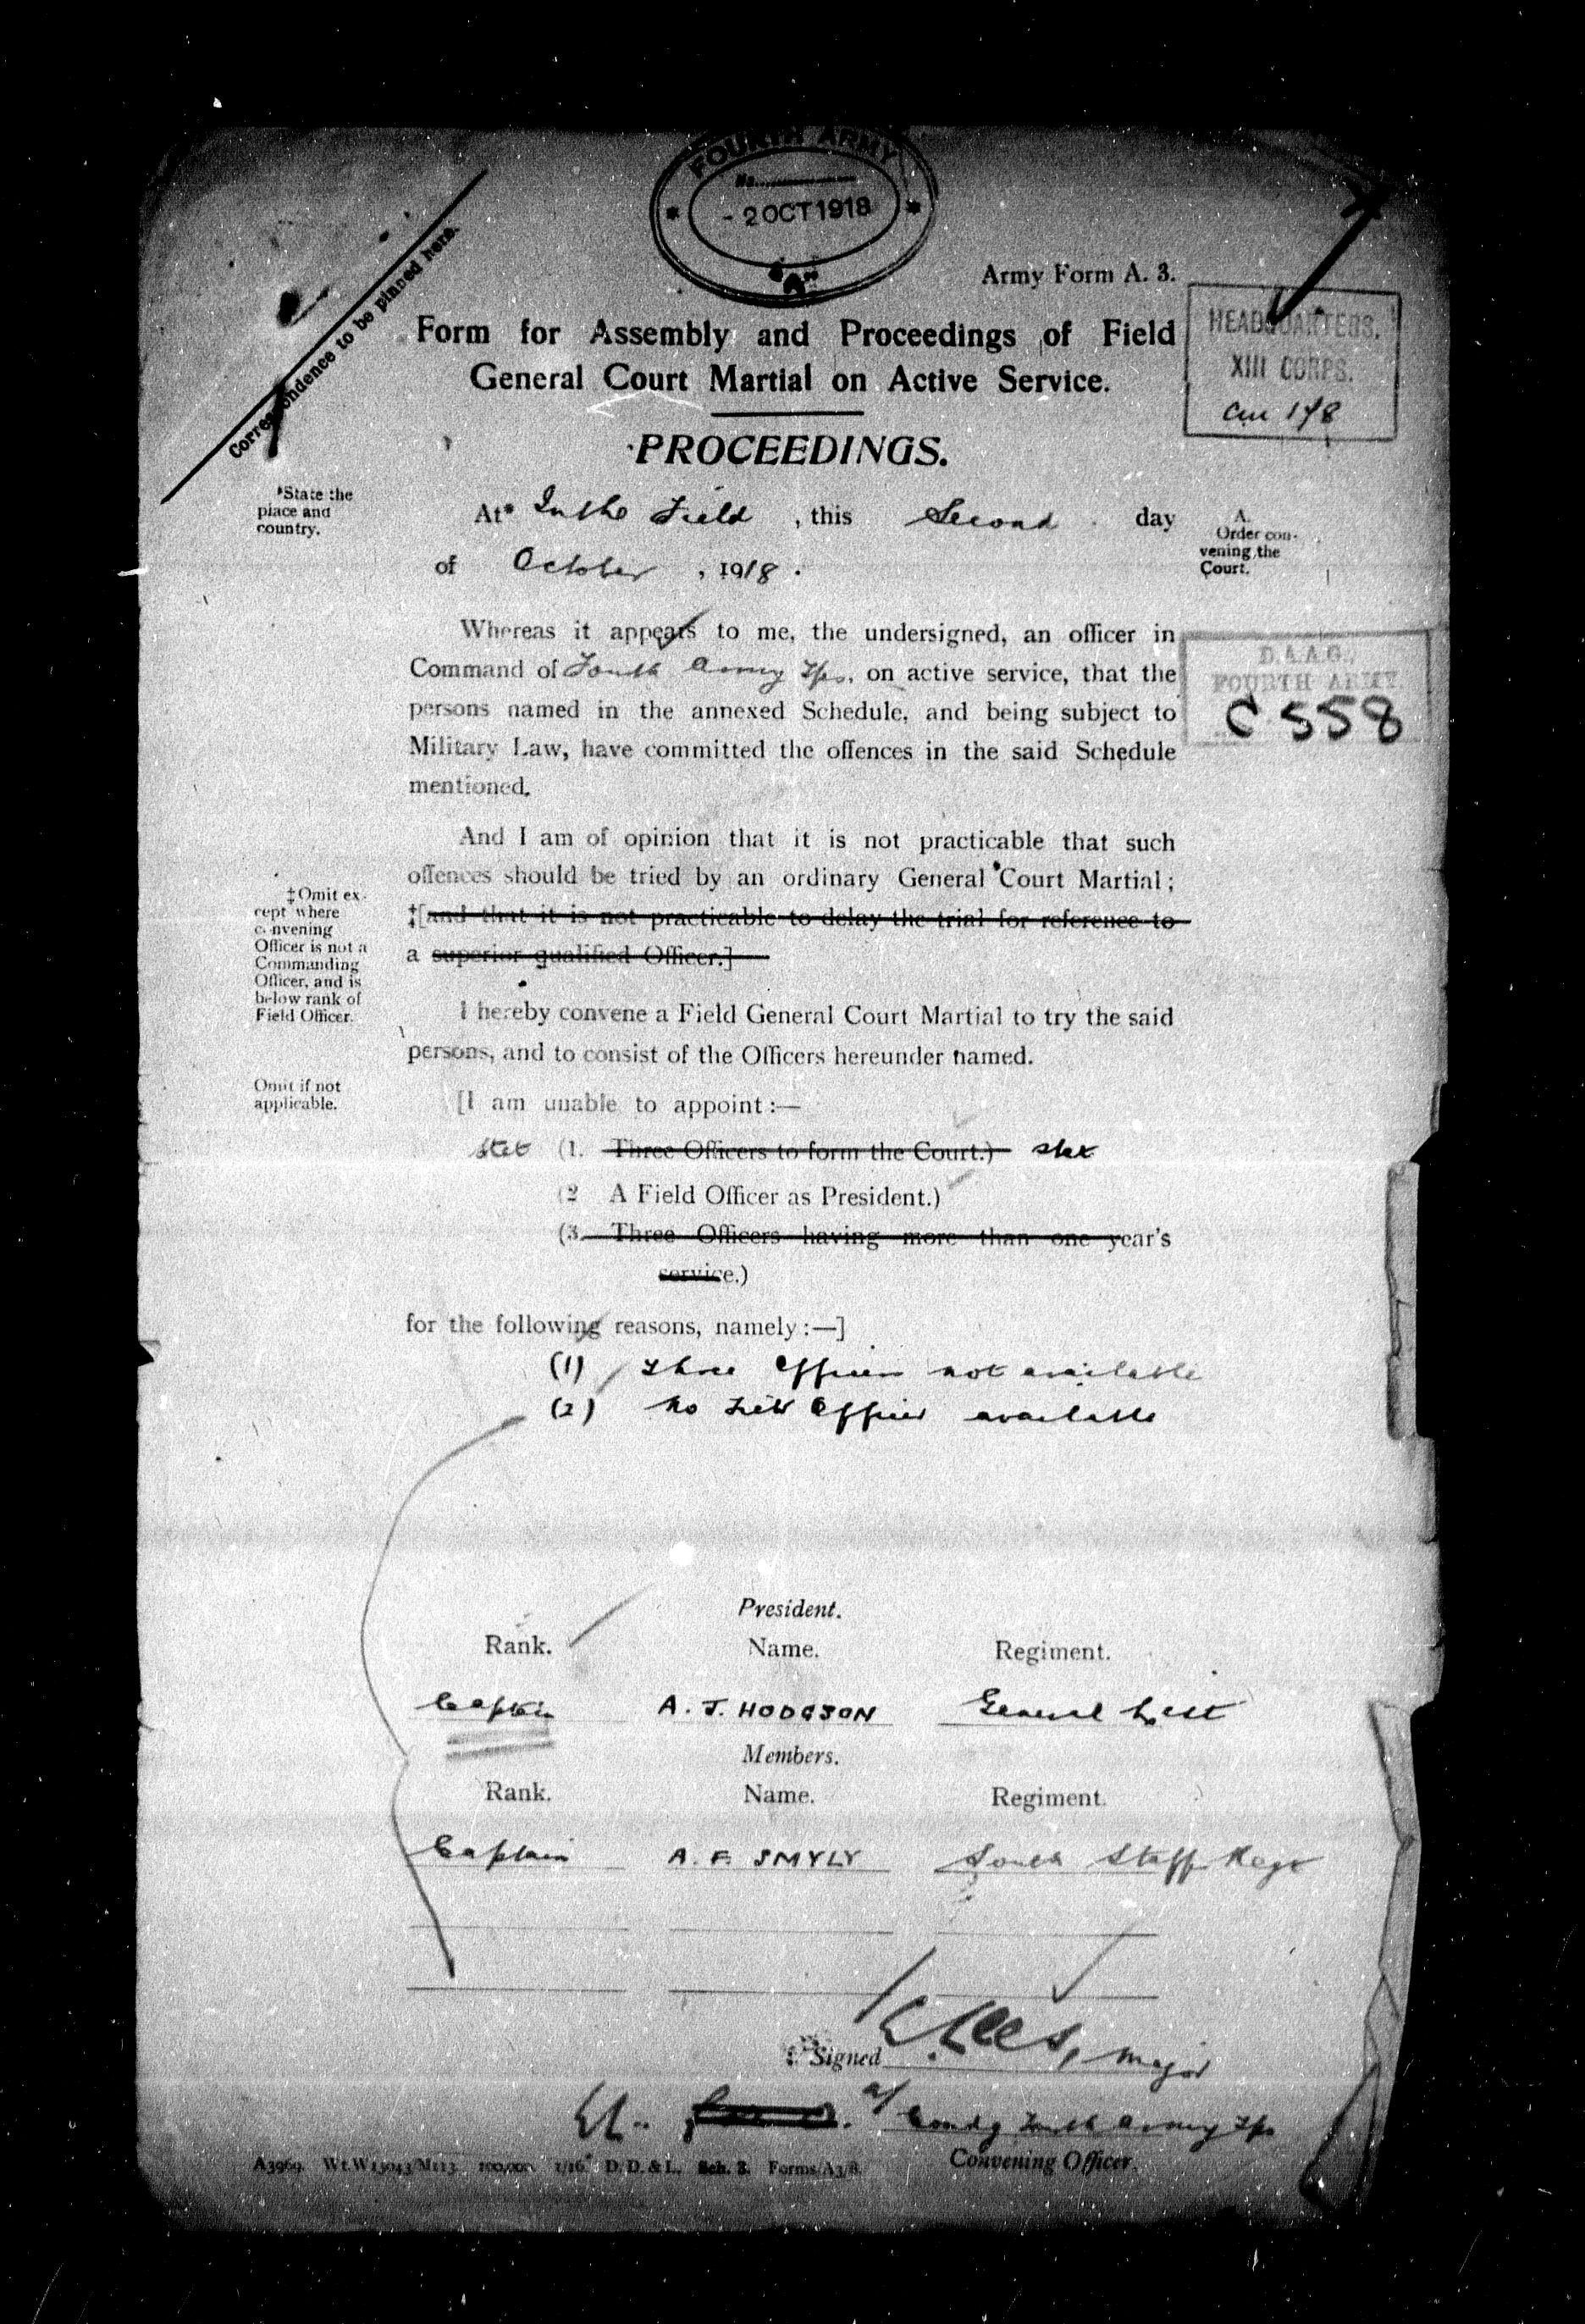 FOURTH ARMY
No.
- 2 OCT 1918
"A"
Correspondence to be pinned here.
Army Form A. 3.
HEADQUARTERS,
XIII CORPS.
Form for Assembly and Proceedings of Field
General Court Martial on Active Service.
PROCEEDINGS.
*State the
place and
country.
At* In the Field , this Second day
of October , 1918 .
A.
Order con-
vening the
Court.
Whereas it appears to me, the undersigned, an officer in
Command of Fourth Army Tps, on active service, that the
persons named in the annexed Schedule, and being subject to
Military Law, have committed the offences in the said Schedule
mentioned.
D.A.A.G.,
FOURTH ARMY.
C 558
And I am of opinion that it is not practicable that such
offences should be tried by an ordinary General Court Martial;
‡[and that it is not practicable to delay the trial for reference to
a superior qualified Officer.]
‡Omit ex-
cept where
convening
Officer is not a
Commanding
Officer, and is
below rank of
Field Officer.
I hereby convene a Field General Court Martial to try the said
persons, and to consist of the Officers hereunder named.
Omit if not
applicable.
[I am unable to appoint:—
stet (1. Three Officers to form the Court.) stet
(2 A Field Officer as President.)
(3. Three Officers having more than one year's
service.)
for the following reasons, namely:—]
(1) Three Officers not available
(2) No Field Officer available
President.
Rank. Name. Regiment.
Captain A. J. HODGSON General List
Members.
Rank. Name. Regiment.
Captain A. F. SMYLY South Staff Regt
Signed Major
a/ Comdg Fourth Army Tps
Convening Officer.
A3969. Wt.W15043/M113 100,000 1/16 D.D.&L. Sch. 3. Forms/A3/8.